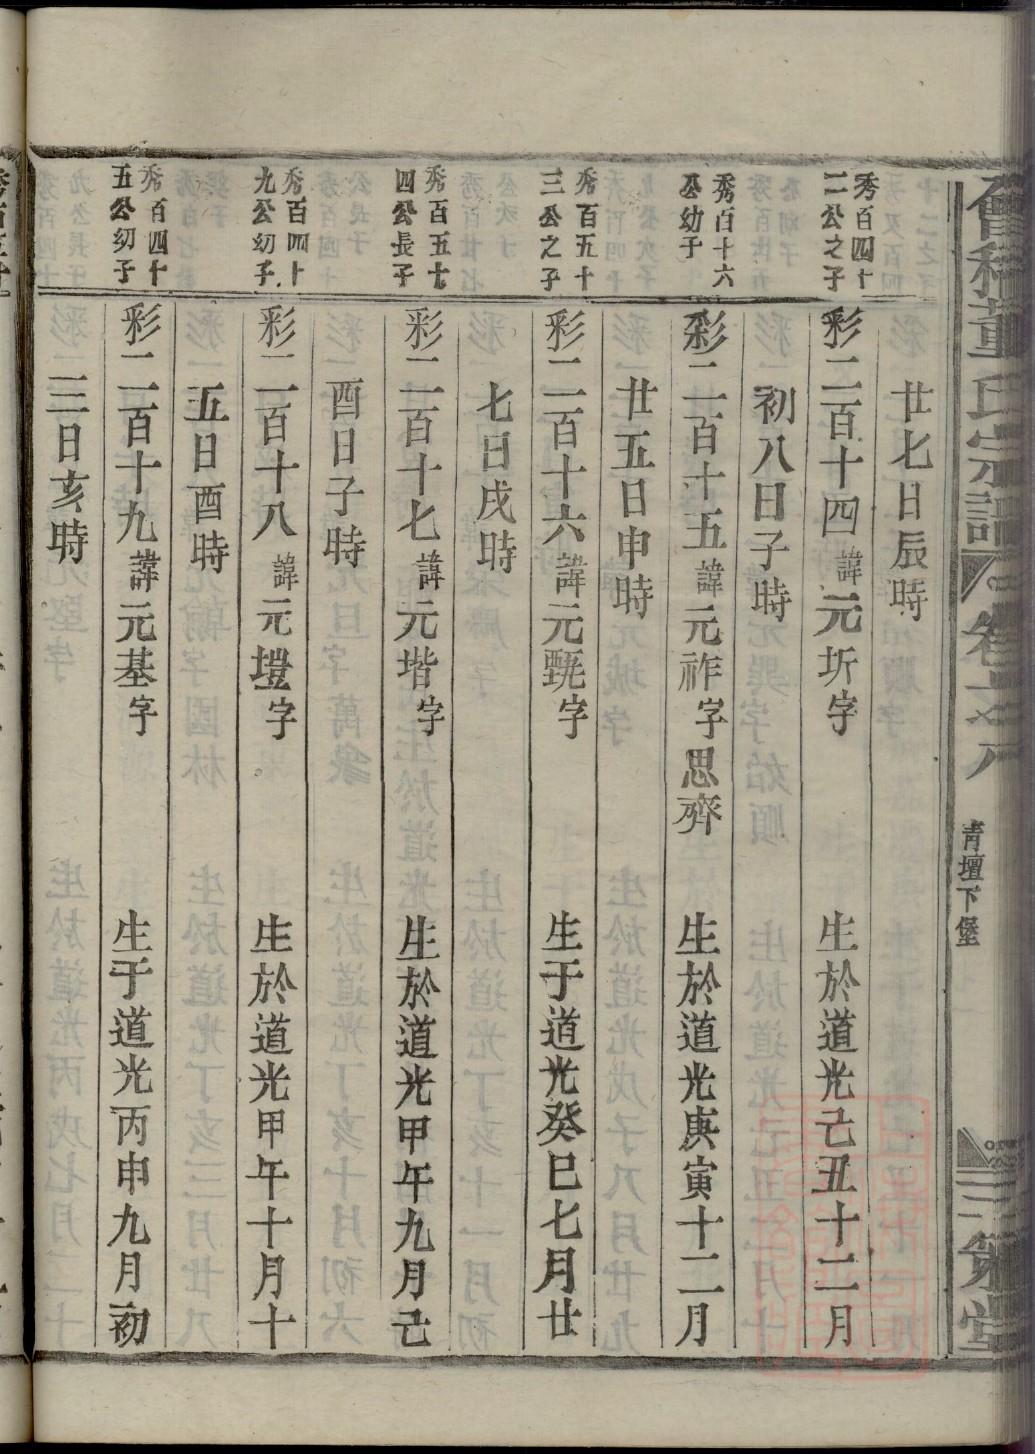 會稽董氏宗譜
青壇下堡
廿七日辰時
秀百四十
二公之子
彩二百十四諱元圻字
生於道光己丑十二月
初八日子時
秀百十六
公幼子
彩二百十五諱元祚字思齊
生於道光庚寅十二月
廿五日申時
秀百五十
三公之子
彩二百十六諱元字
生于道光癸巳七月廿
七日戌時
秀百五七
四公長子
彩二百十七諱元堦字
生於道光甲午九月己
酉日子時
秀百四十
九公幼子
彩二百十八諱元塏字
生於道光甲午十月十
五日酉時
秀百四十
五公幼子
彩二百十九諱元基字
生于道光丙申九月初
三日亥時